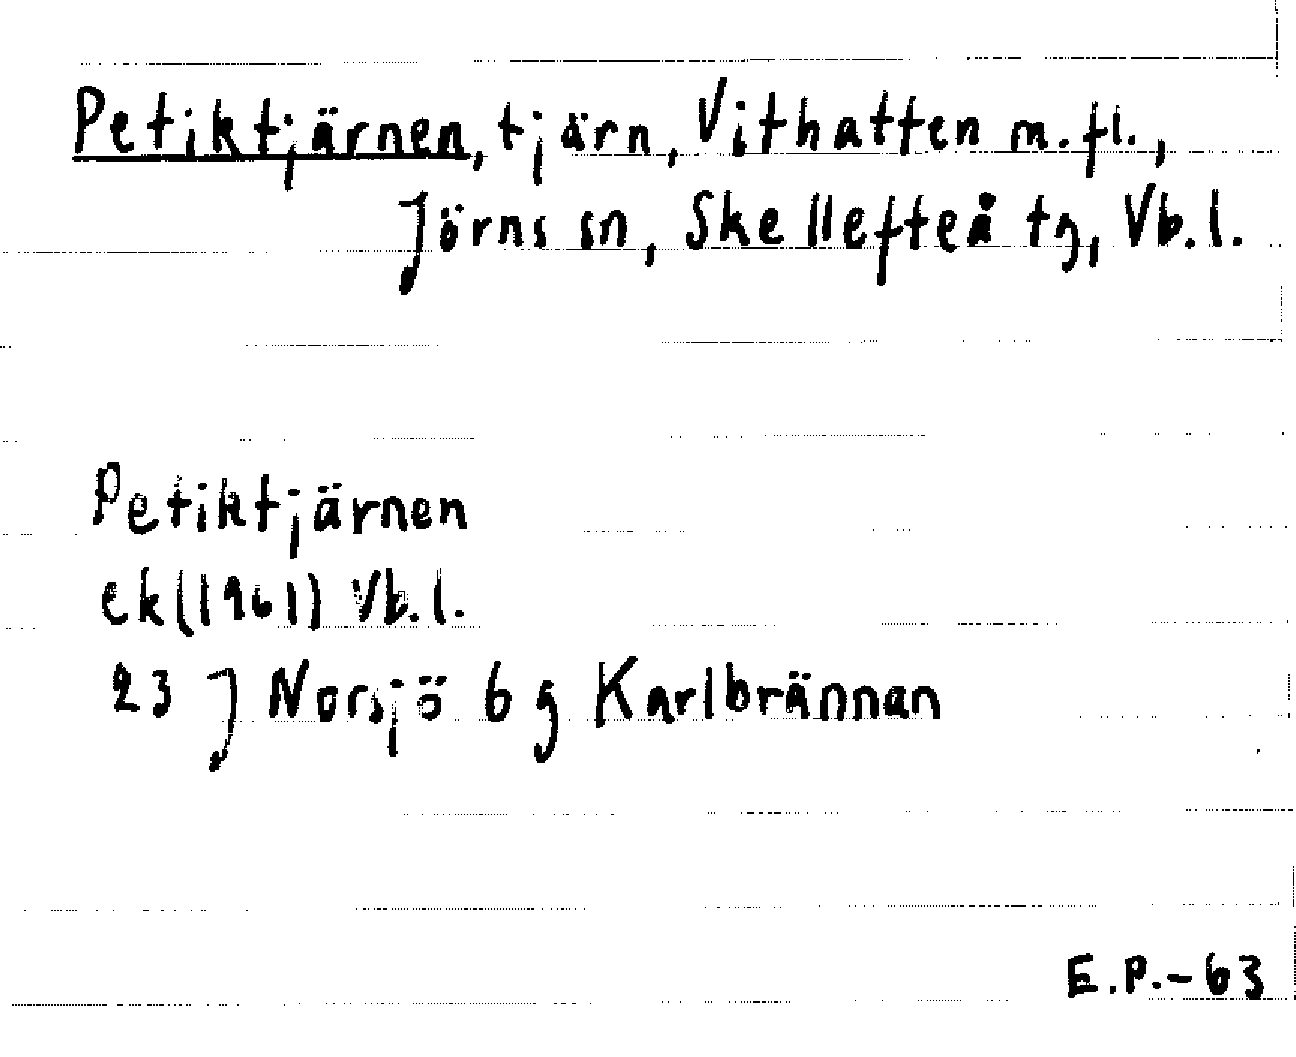 Petiktjärnen, tjärn, Vithatten m.fl.,
Jörns sn, Skellefteå tg, Vb.l.
Petiktjärnen
ek(1961) Vb.l.
23 J Norsjö 6 g Karlbrännan
E.P.-63